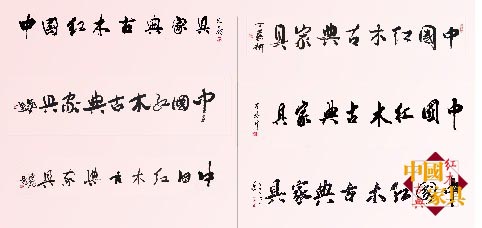 中國红木古典家具
中國红木古典家具
中国红木古典家具
中國红木古典家具
中國红木古典家具
中國红木古典家具
中國家具
红木
古典